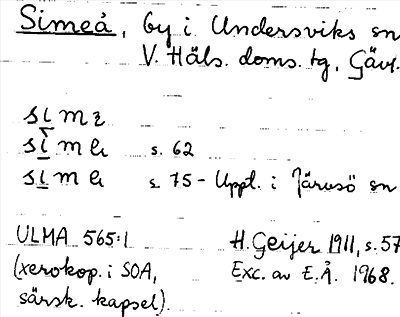 Simeå, by i Undersviks sn
V. Häls. doms. tg, Gävl.
simɛ
simɐ s. 62
simɐ s. 75 - Uppt. i Järvsö sn
ULMA 565:1 H. Geijer 1911, s. 57
(xerokop. i SOA, Exc. av E.Å. 1968.
särsk. kapsel).